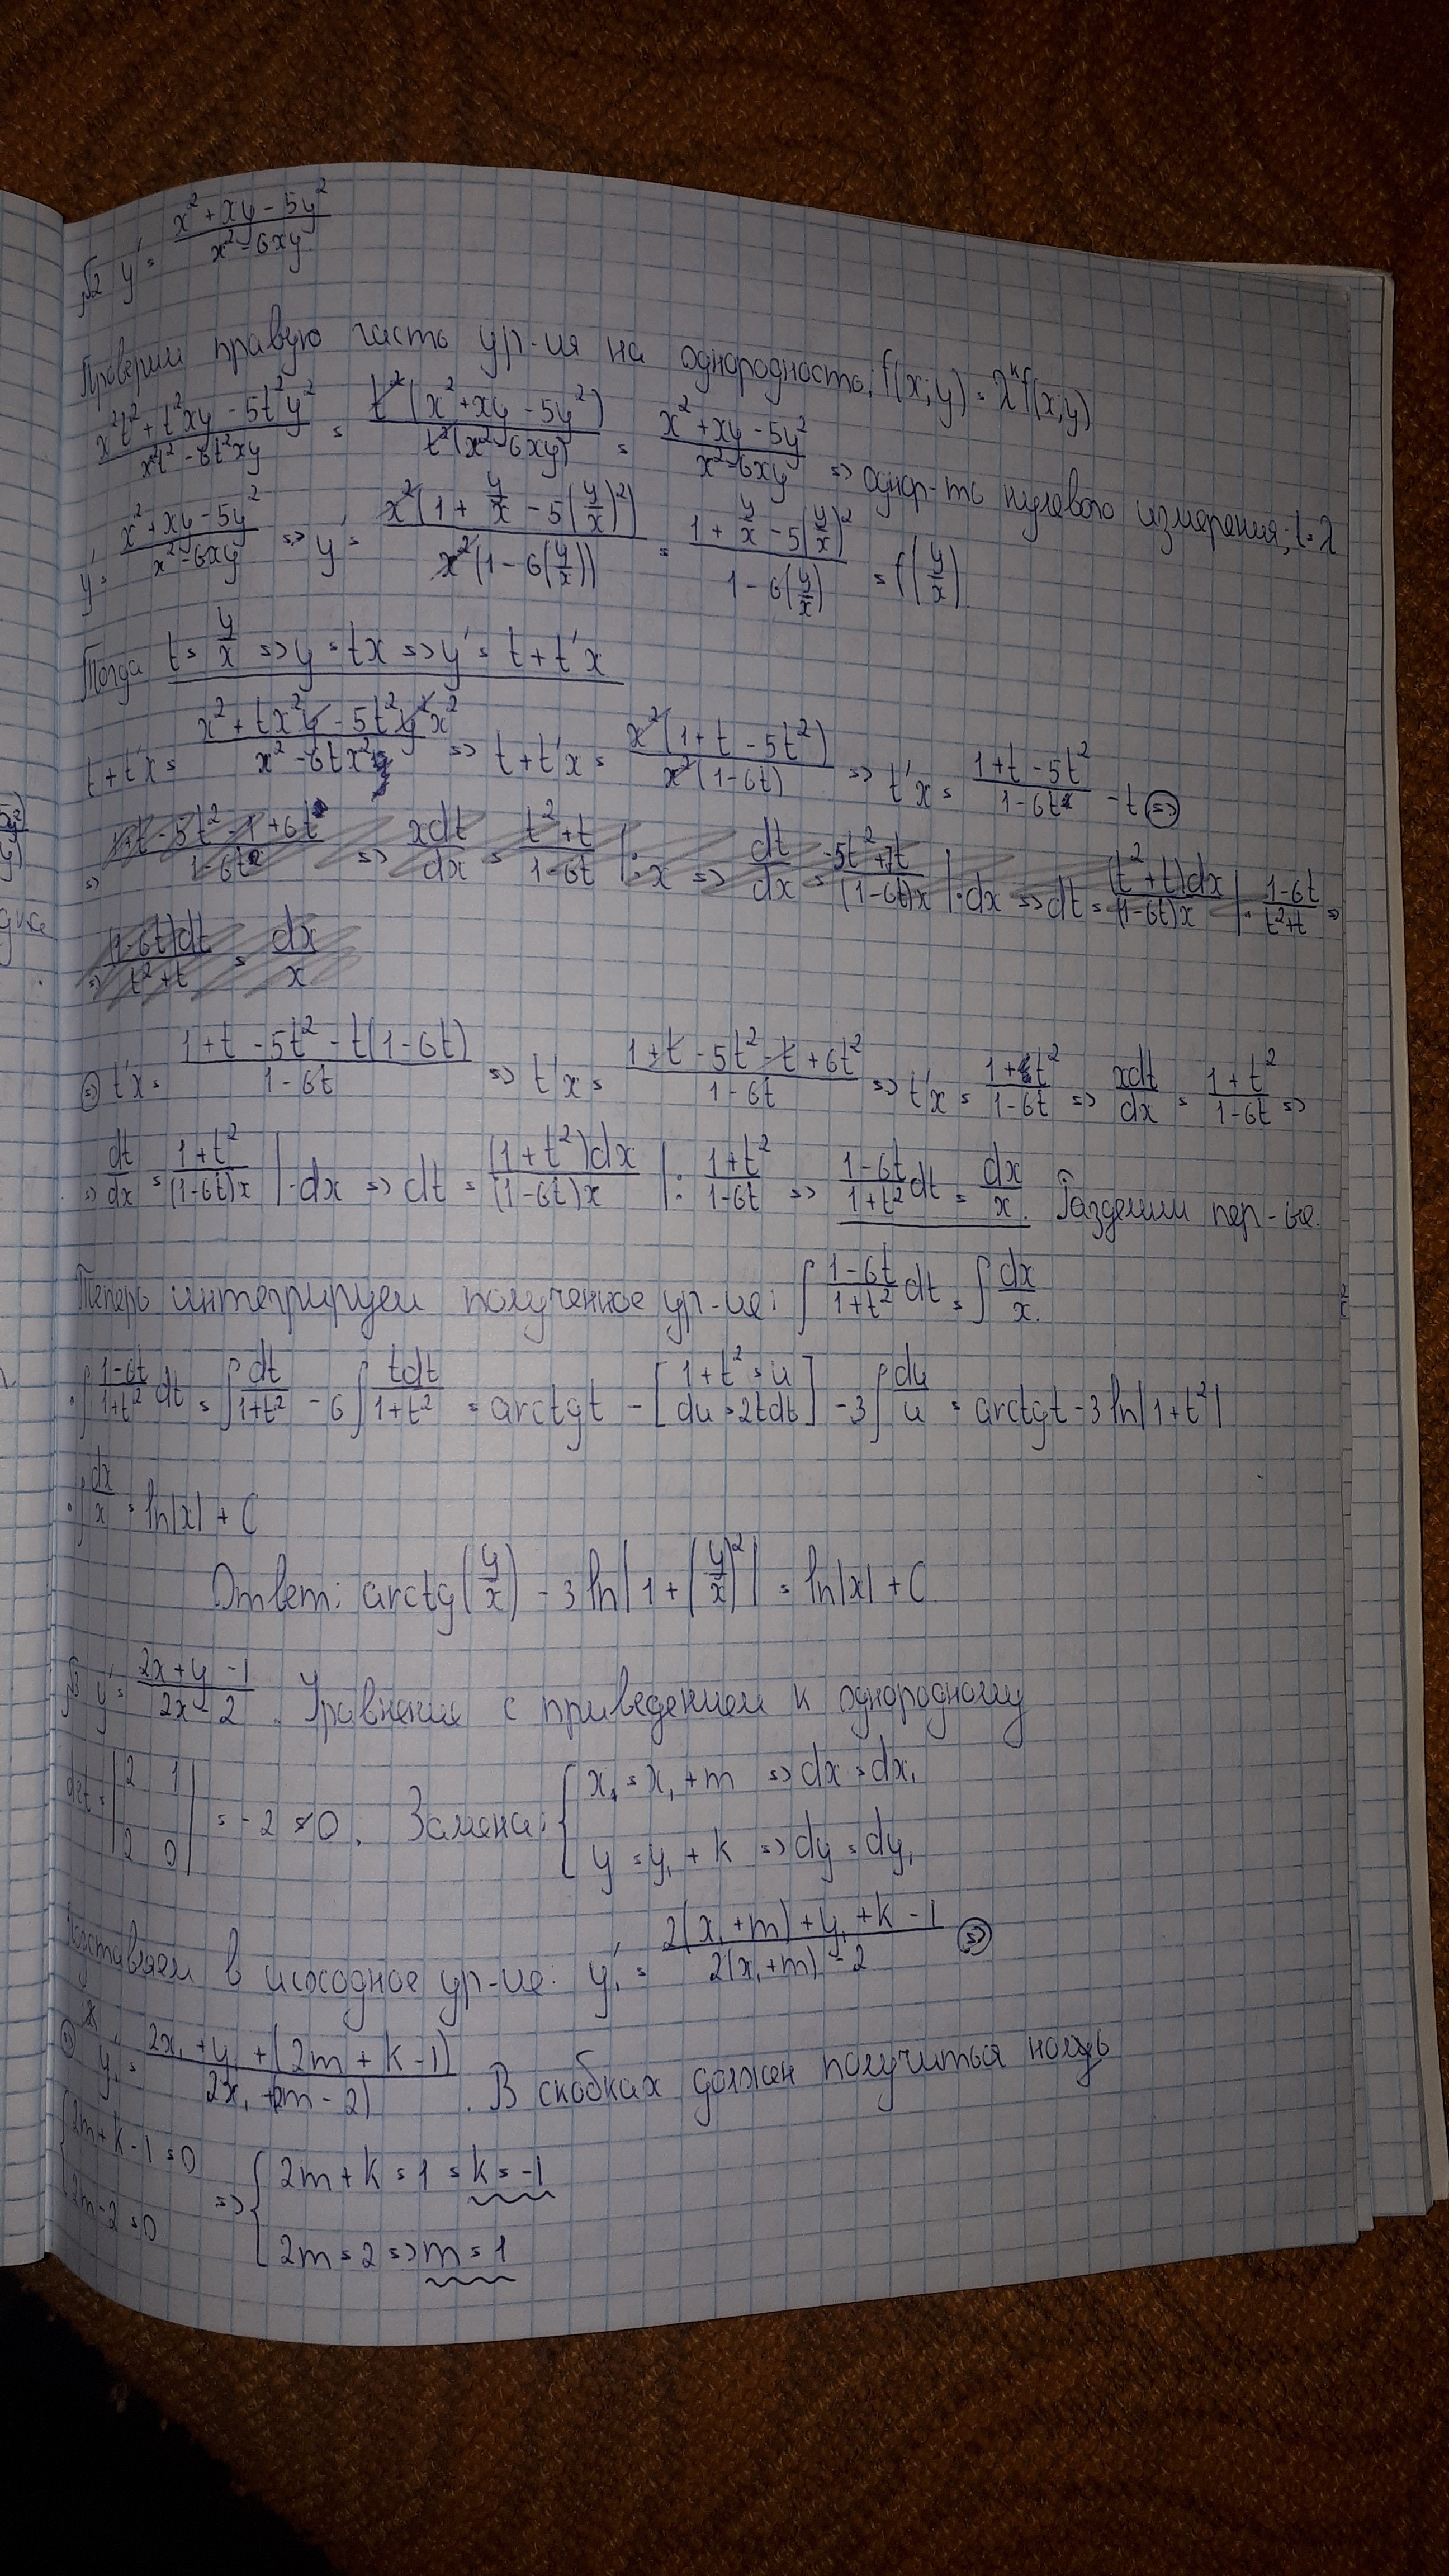 №2 y' = (x² + xy - 5y²)/(x² - 6xy)
Проверим правую часть ур-ия на однородность: f(x;y) = λᵏf(x;y)
(x²t² + t²xy - 5t²y²)/(x²t² - 6t²xy) = t²(x² + xy - 5y²)/t²(x² - 6xy) = (x² + xy - 5y²)/(x² - 6xy) => однор-ть нулевого измерения; t=λ
y' = (x² + xy - 5y²)/(x² - 6xy) => y' = x²(1 + y/x - 5(y/x)²)/x²(1 - 6(y/x)) = (1 + y/x - 5(y/x)²)/(1 - 6(y/x)) = f(y/x)
Тогда t = y/x => y = tx => y' = t + t'x
t + t'x = (x² + tx² - 5t²x²)/(x² - 6tx²) => t + t'x = x²(1 + t - 5t²)/x²(1 - 6t) => t'x = (1 + t - 5t²)/(1 - 6t) - t =>
=> (1+t - 5t² - 1 + 6t)/(1 - 6t) => xdt/dx = (t² + t)/(1 - 6t) |: x => dt/dx = (-5t² + 7t)/(1 - 6t)x | · dx => dt = (t² + t)dx/(1 - 6t)x | · (1 - 6t)/(t² + t) =>
=> (1 - 6t)dt/(t² + t) = dx/x
=> t'x = (1 + t - 5t² - t(1 - 6t))/(1 - 6t) => t'x = (1 + t - 5t² - t + 6t²)/(1 - 6t) => t'x = (1 + t²)/(1 - 6t) => xdt/dx = (1 + t²)/(1 - 6t) =>
=> dt/dx = (1 + t²)/(1 - 6t)x | · dx => dt = (1 + t²)dx/(1 - 6t)x |: (1 + t²)/(1 - 6t) => (1 - 6t)/(1 + t²) dt = dx/x. Разделили пер-ые.
Теперь интегрируем полученное ур-ие: ∫ (1 - 6t)/(1 + t²) dt = ∫ dx/x.
• ∫ (1 - 6t)/(1 + t²) dt = ∫ dt/(1 + t²) - 6 ∫ tdt/(1 + t²) = arctg t - [1 + t² = u; du = 2tdt] - 3 ∫ du/u = arctg t - 3 ln|1 + t²|
• ∫ dx/x = ln|x| + C
Ответ: arctg(y/x) - 3 ln|1 + (y/x)²| = ln|x| + C
№3 y' = (2x + y - 1)/(2x - 2). Уравнение с приведением к однородному
det = |2 1; 2 0| = -2 ≠ 0. Замена: { x = x₁ + m => dx = dx₁
y = y₁ + k => dy = dy₁
Подставляем в исходное ур-ие: y₁' = (2(x₁ + m) + y₁ + k - 1)/(2(x₁ + m) - 2) =>
=> y₁' = (2x₁ + y₁ + (2m + k - 1))/(2x₁ + (2m - 2)). В скобках должен получиться ноль
{ 2m + k - 1 = 0 => { 2m + k = 1 = k = -1
2m - 2 = 0 2m = 2 => m = 1